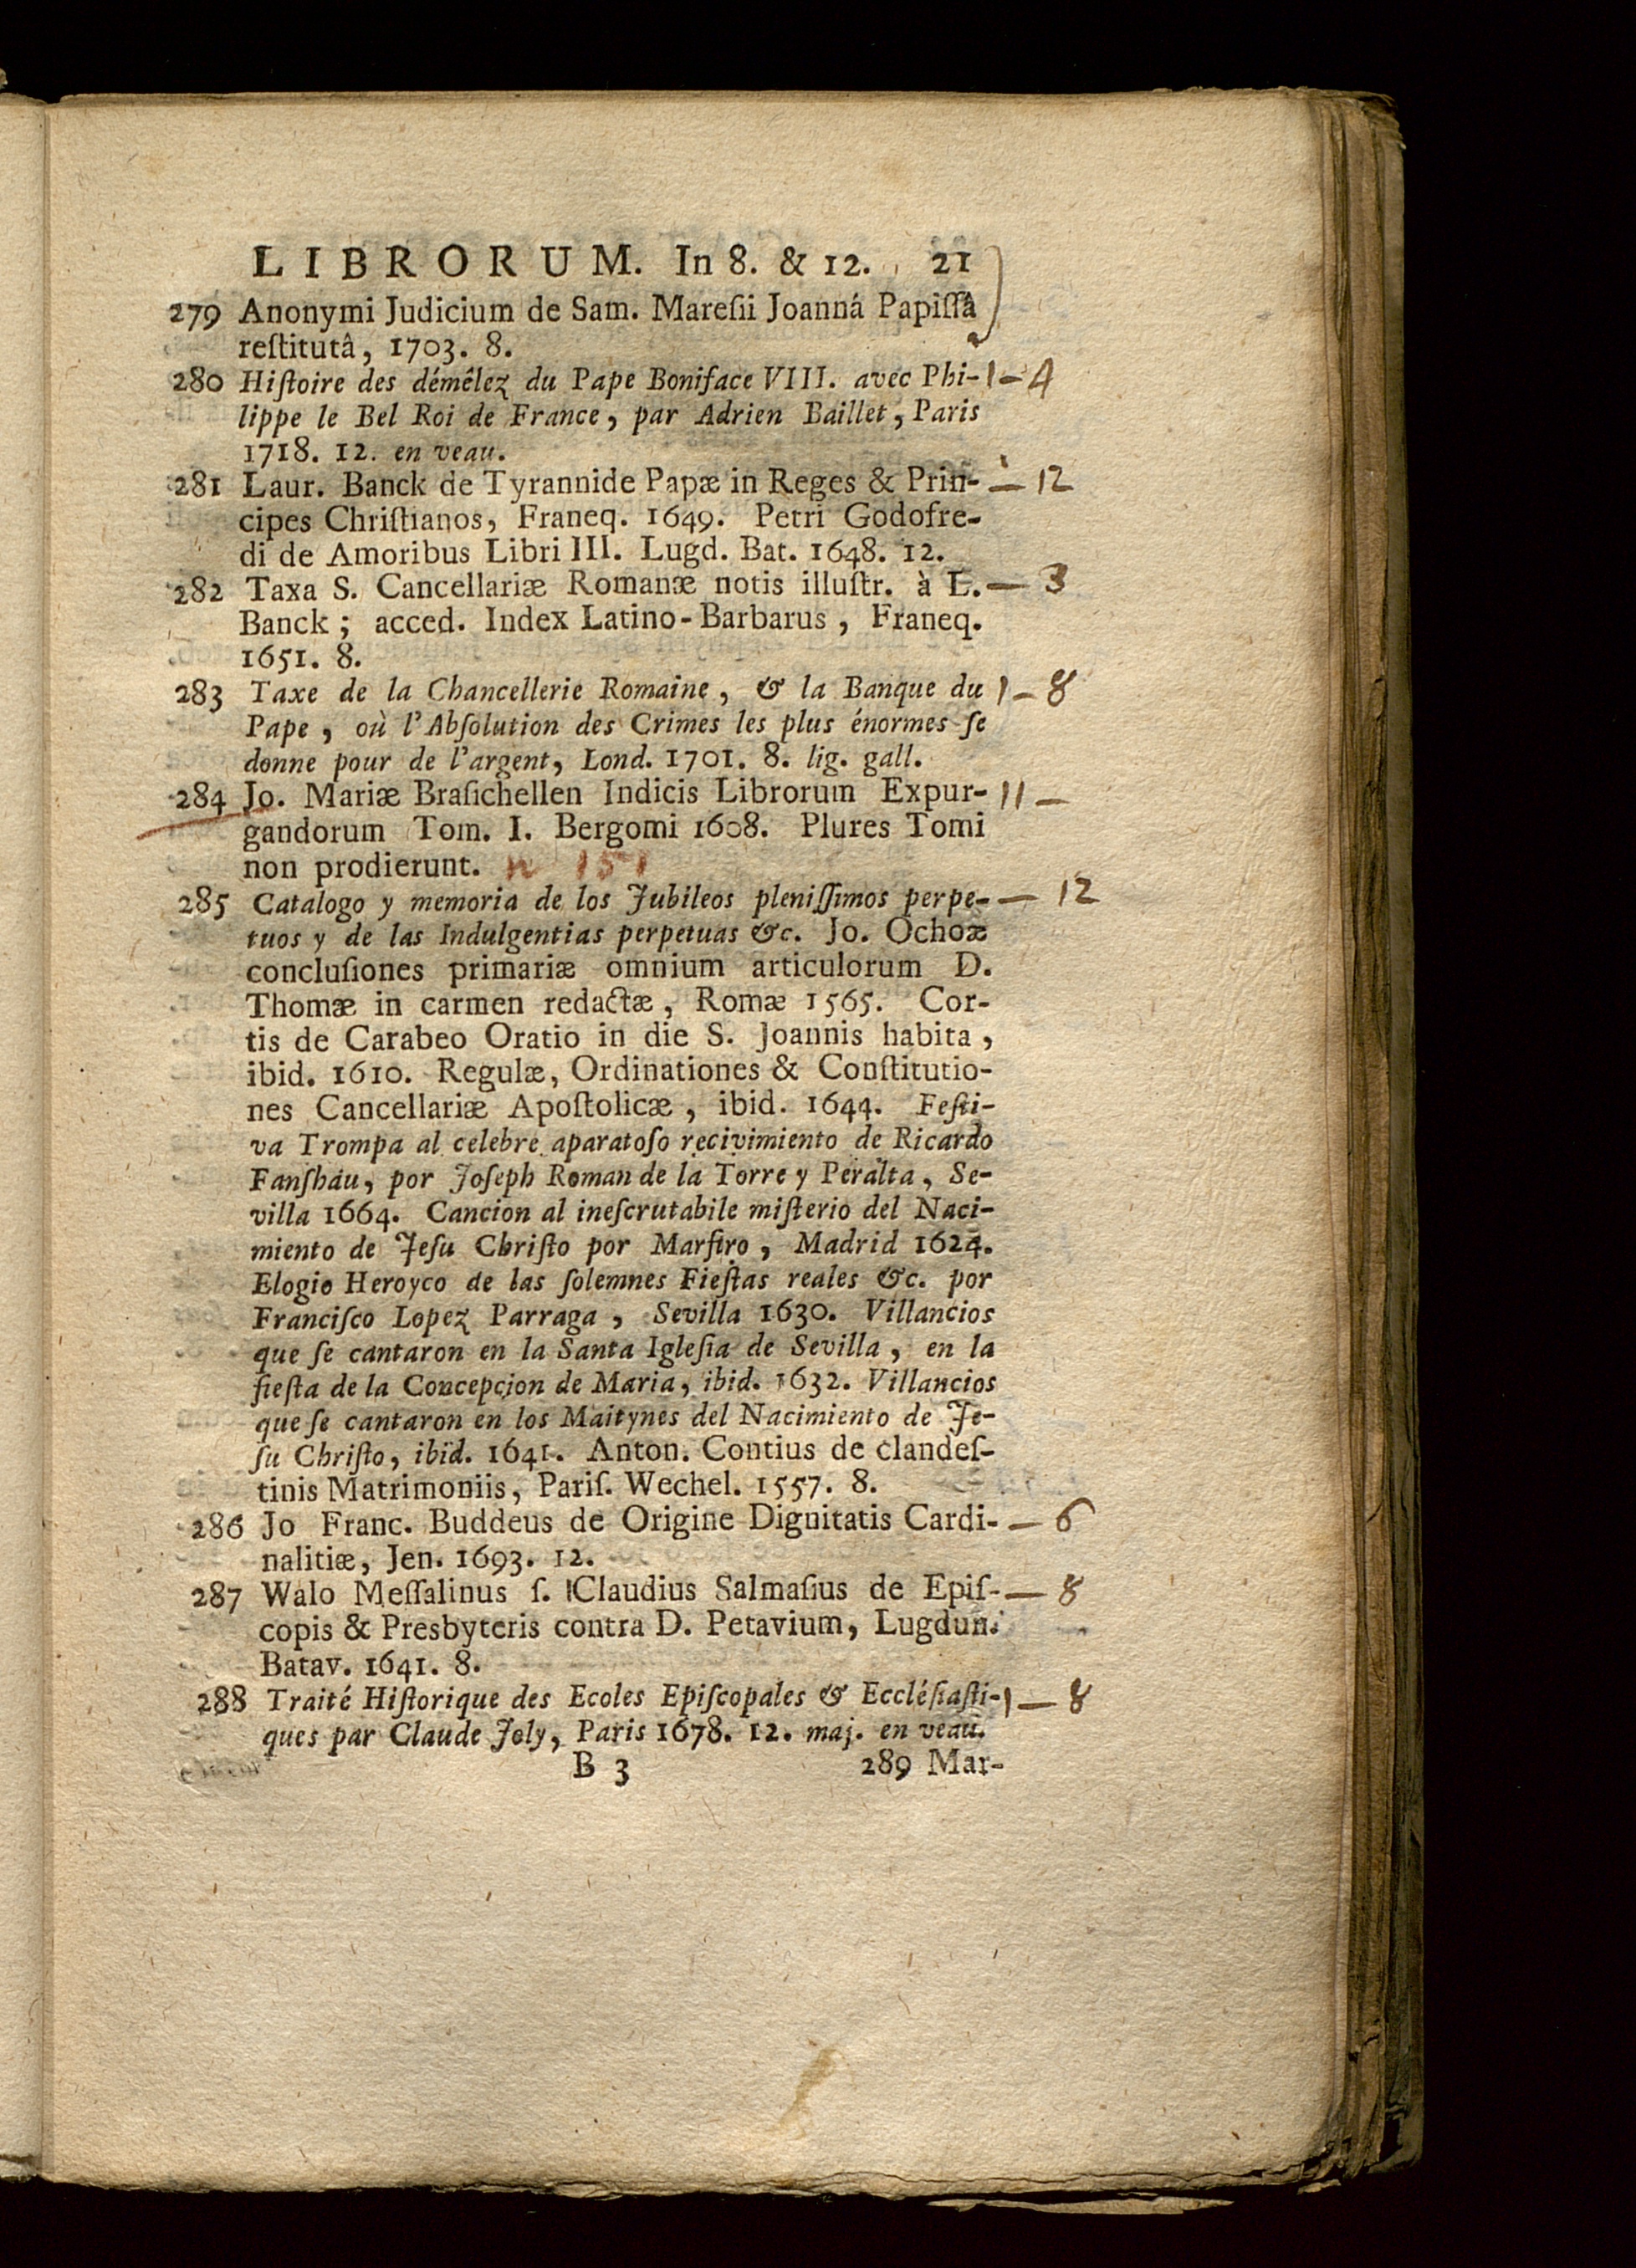 LIBRORUM. In 8. & 12. 21
279 Anonymi Judicium de Sam. Mareſii Joannâ Papiſſâ
reſtitutâ, 1703. 8.
280 Hiſtoire des démêlez du Pape Boniface VIII. avec Phi- 1 - 4
lippe le Bel Roi de France, par Adrien Baillet, Paris
1718. 12. en veau.
281 Laur. Banck de Tyrannide Papæ in Reges & Prin- — 12
cipes Chriſtianos, Franeq. 1649. Petri Godofre-
di de Amoribus Libri III. Lugd. Bat. 1648. 12.
282 Taxa S. Cancellariæ Romanæ notis illuſtr. à L. — 3
Banck; acced. Index Latino-Barbarus, Franeq.
1651. 8.
283 Taxe de la Chancellerie Romaine, & la Banque du 1 - 8
Pape, où l'Abſolution des Crimes les plus énormes ſe
donne pour de l'argent, Lond. 1701. 8. lig. gall.
284 Jo. Mariæ Braſichellen Indicis Librorum Expur- 11 —
gandorum Tom. I. Bergomi 1608. Plures Tomi
non prodierunt. n 151
285 Catalogo y memoria de los Jubileos pleniſſimos perpe- — 12
tuos y de las Indulgentias perpetuas &c. Jo. Ochoæ
concluſiones primariæ omnium articulorum D.
Thomæ in carmen redactæ, Romæ 1565. Cor-
tis de Carabeo Oratio in die S. Joannis habita,
ibid. 1610. Regulæ, Ordinationes & Conſtitutio-
nes Cancellariæ Apoſtolicæ, ibid. 1644. Feſti-
va Trompa al celebre aparatoſo recivimiento de Ricardo
Fanſhau, por Joſeph Roman de la Torre y Peralta, Se-
villa 1664. Cancion al ineſcrutabile miſterio del Naci-
miento de Jeſu Chriſto por Marfiro, Madrid 1624.
Elogio Heroyco de las ſolemnes Fieſtas reales &c. por
Franciſco Lopez Parraga, Sevilla 1630. Villancios
que ſe cantaron en la Santa Igleſia de Sevilla, en la
fieſta de la Concepcion de Maria, ibid. 1632. Villancios
que ſe cantaron en los Maitynes del Nacimiento de Je-
ſu Chriſto, ibid. 1641. Anton. Contius de clandeſ-
tinis Matrimoniis, Pariſ. Wechel. 1557. 8.
286 Jo Franc. Buddeus de Origine Dignitatis Cardi- — 6
nalitiæ, Jen. 1693. 12.
287 Walo Meſſalinus ſ. Claudius Salmaſius de Epiſ- — 8
copis & Presbyteris contra D. Petavium, Lugdun.
Batav. 1641. 8.
288 Traité Hiſtorique des Ecoles Epiſcopales & Eccléſiaſti- 1 — 8
ques par Claude Joly, Paris 1678. 12. maj. en veau.
B 3 289 Mar-